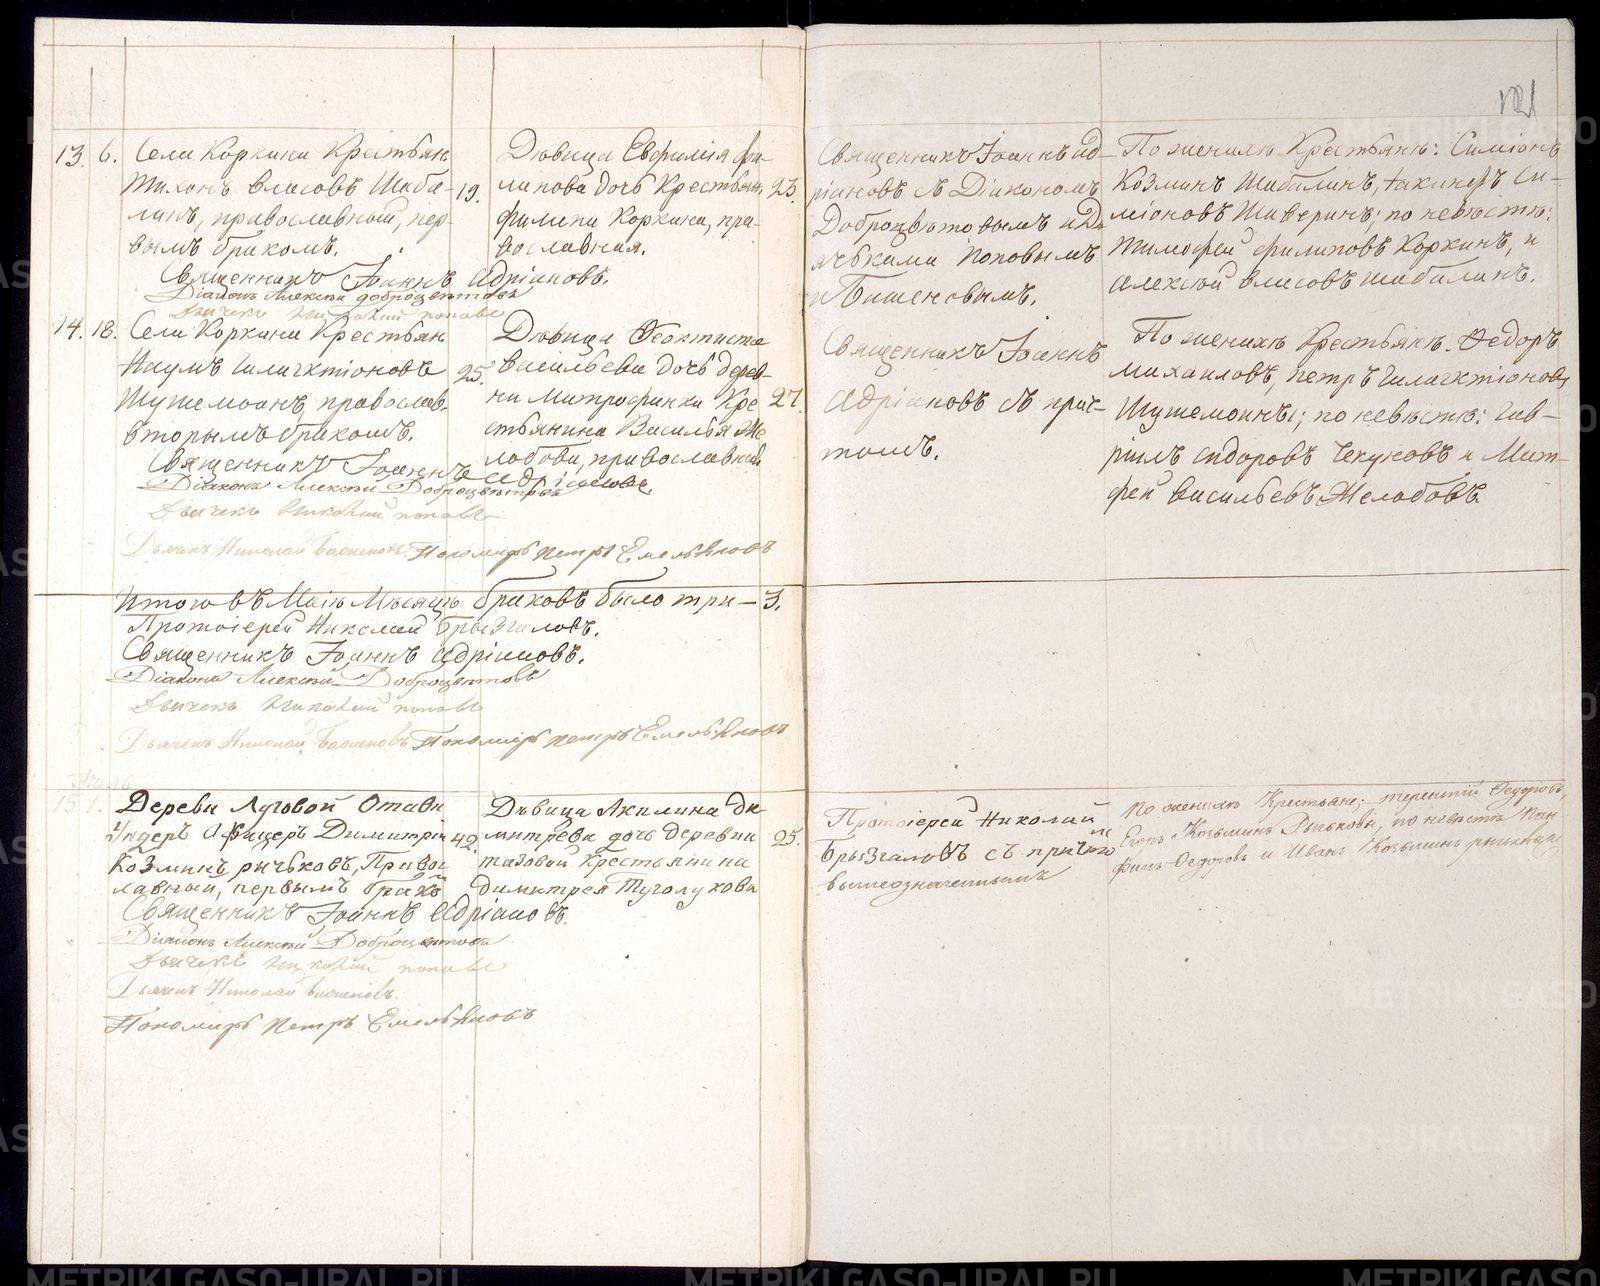 121
13. 6. Села Коркина Крестьян
Тихонъ Власовъ Шаба- 19.
линъ, православный, пер-
вымъ бракомъ.
Дѣвица Евфимія Фи-
липова дочь Крестьян. 23.
Филипа Коркина, пра-
вославная.
Священникъ Іоаннъ Адріановъ.
Діаконъ Алексѣй Доброцвѣтовъ
Дьячекъ Николай Поповъ
Священникъ Іоаннъ Ад-
ріановъ съ Діакономъ
Доброцвѣтовымъ и Дь
ячьками Поповымъ
и
По женихѣ Крестьянѣ: Симіонъ
Козминъ Шабалинъ, Си-
міоновъ Шаверинъ; по невѣстѣ:
Тимофей Филиповъ Коркинъ, и
Алексѣй Власовъ Шабалинъ.
14. 18. Села Коркина Крестьян
Наумъ Галактіоновъ 25.
православ.
вторымъ бракомъ.
Дѣвица Феоктиста
Васильева дочь дерев-
ни Митрофанки Кре 27.
стьянина Василья Же
лобова, православная
Священникъ Іоаннъ Адріановъ.
Діаконъ Алексѣй Доброцвѣтовъ
Дьячекъ Николай Поповъ
Дьячекъ Николай Пономарь Петръ Емельяновъ
Священникъ Іоаннъ
Адріановъ съ прич-
томъ.
По женихѣ Крестьянѣ. Федоръ
Михаиловъ, Петръ Галактіоновъ
по невѣстѣ: Гав-
рiилъ Сидоровъ Чекуновъ и Мат-
фей Васильевъ Желобовъ.
Итого въ Маіѣ Мѣсяцѣ браковъ было три – 3.
Протоіерей Николай Брызгаловъ.
Священникъ Іоаннъ Адріановъ.
Діаконъ Алексѣй Доброцвѣтовъ
Дьячекъ Николай Поповъ
Дьячекъ Николай Пономарь Петръ Емельяновъ
15. 1. Деревн Луговой Отавн
Ундеръ Афицеръ Димитрій 42.
Козминъ Рычьковъ, Правос
лавный, первымъ бракъ
Дѣвица Акилина Ди
митрева дочь деревни 25.
Крестьянина
Димитрея Туголукова
Священникъ Іоаннъ Адріановъ.
Діаконъ Алексѣй Доброцвѣтовъ
Дьячекъ Николай Поповъ
Дьячекъ Николай
Пономарь Петръ Емельяновъ
Протоіерей Николай
Брызгаловъ съ причто
вышеозначеннымъ
По женихѣ Крестьяне; Терентій Федоровъ,
Егоръ Козьминъ по невѣстѣ
Федоровъ и Иванъ Козьминъ
METRIKI.GASO-URAL.RU